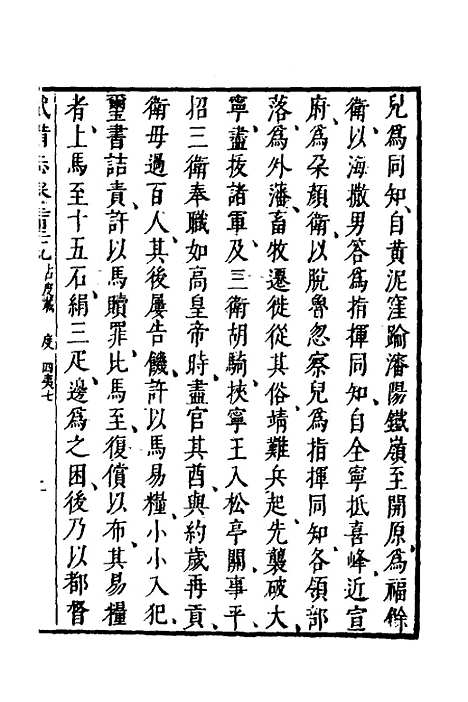 兒為同知自黃泥窪踰瀋陽鐵嶺至開原為福餘
衛以海撒男答為指揮同知自全寧抵喜峰近宣
府為朵顏衛以脫魯忽察兒為指揮同知各領部
落為外藩畜牧遷徙從其俗靖難兵起先襲破大
寧盡拔諸軍及三衛胡騎挾寧王入松亭關事平
招三衛奉職如高皇帝時盡官其酋與約歲再貢
衛毋過百人其後屢告饑許以馬易糧小小入犯
璽書詰責許以馬贖罪比馬至復償以布其易糧
者上馬至十五石絹三疋邊為之困後乃以都督
武備志卷 占度載 度 四夷七